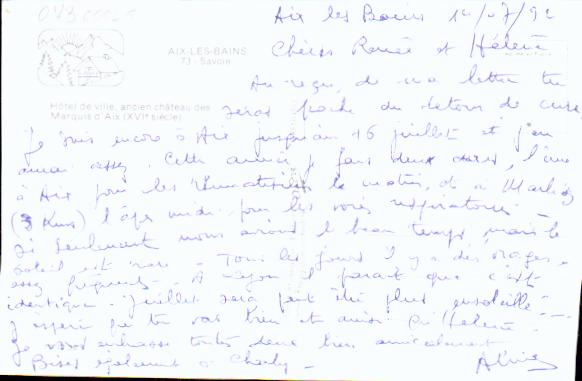 04300025
Aix les Bains 10/07/92
AIX-LES-BAINS
73 - Savoie
Chères Renée et Hélène
Hôtel de ville, ancien château des
Marquis d'Aix (XVIe siècle)
Au reçu de ma lettre tu
seras proche du retour de cure
Je suis encore à Aix jusqu'au 16 juillet et j'en
aurai assez. Cette année je fais deux cures, l'une
à Aix pour les rhumatismes le matin, et à Marlioz
(3 Kms) l'après midi pour les voies respiratoires -
Si seulement nous avions le beau temps, mais le
soleil est rare - Tous les jours il y a des orages,
assez fréquents - A Lyon il paraît que c'est
identique. Juillet sera peut être plus ensoleillé -
J'espère que tu vas bien et aussi Hélène.
Je vous embrasse toutes deux bien amicalement
Bises également à Charly -